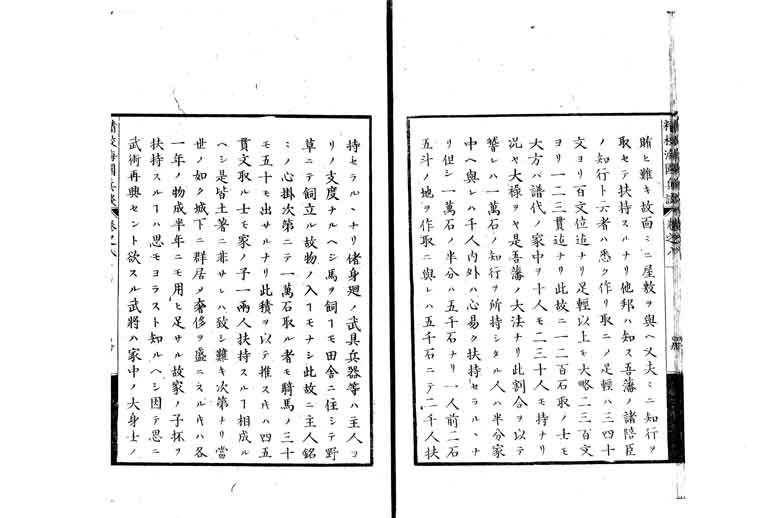 精校海國兵談 卷之八
賄ヒ難キ故面ミニ屋敷ヲ與ヘ乂夫ミニ知行ヲ
取セテ扶持スルナリ他邦ハ知ス吾藩ノ諸陪臣
ノ知行ト云者ハ悉ク作リ取ニノ足輕ハ三四十
文ヨリ百文位迠ナリ足輕以上モ大略二三百文
ヨリ一二三貫迠ナリ此故ニ一二百石取ノ士モ
大方ハ譜代ノ家中ヲ十人モ二三十人モ持ナリ
况ヤ大祿ヲヤ是吾藩ノ大法ナリ此割合ヲ以テ
譬レハ一萬石ノ知行ヲ所持シタル人ハ半分家
中ヘ與レハ千人内外ハ心易ク扶持セラルヽナ
リ但シ一萬石ノ半分ハ五千石ナリ一人前二石
五斗ノ地ヲ作取ニ與レハ五千石ニテ二千人扶
持セラルヽナリ偖身廻ノ武具兵器等ハ主人ヨ
リノ支度ナルヘシ馬ヲ飼ーモ田舎ニ住シテ野
草ニテ飼立ル故物ノ入ーモナシ此故ニ主人銘
ミノ心掛次第ニテ一萬石取ル者モ騎馬ノ三十
モ五十モ出サルナリ此積ヲ以テ推ス寸ハ四五
貫文取ル士モ家ノ子一兩人扶持スルー相成ル
ヘシ是皆土著ニ非サレハ致シ難キ次第ナリ當
世ノ如ク城下ニ群居メ奢侈ヲ盛ニスル寸ハ各
一年ノ物成半年ニモ用ヒ足サル故家ノ子抔ヲ
扶持スルーハ思モヨラスト知ルヘシ因テ思ニ
武術再興セント欲スル武將ハ家中ノ大身士ノ
精校海國兵談 卷之八